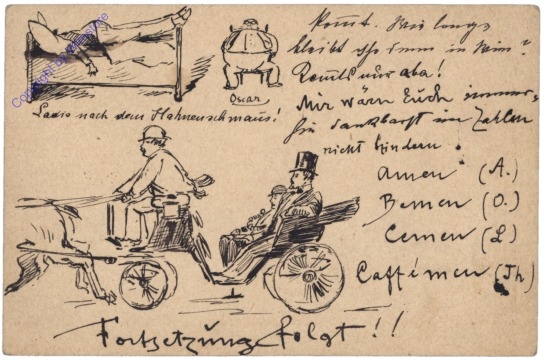 kommt. Wie lange
bleibt Ihr denn in Wien?
Kommt nur aba!
Mir wärn Euch immer
hin dankbarst im Zahlen
nicht hindern.
Amen (A.)
Bemen (O.)
Cemen (L)
Caffémen (Th)
Oscar
Lacio nach dem Hahnenschmaus!
Fortsetzung folgt!!